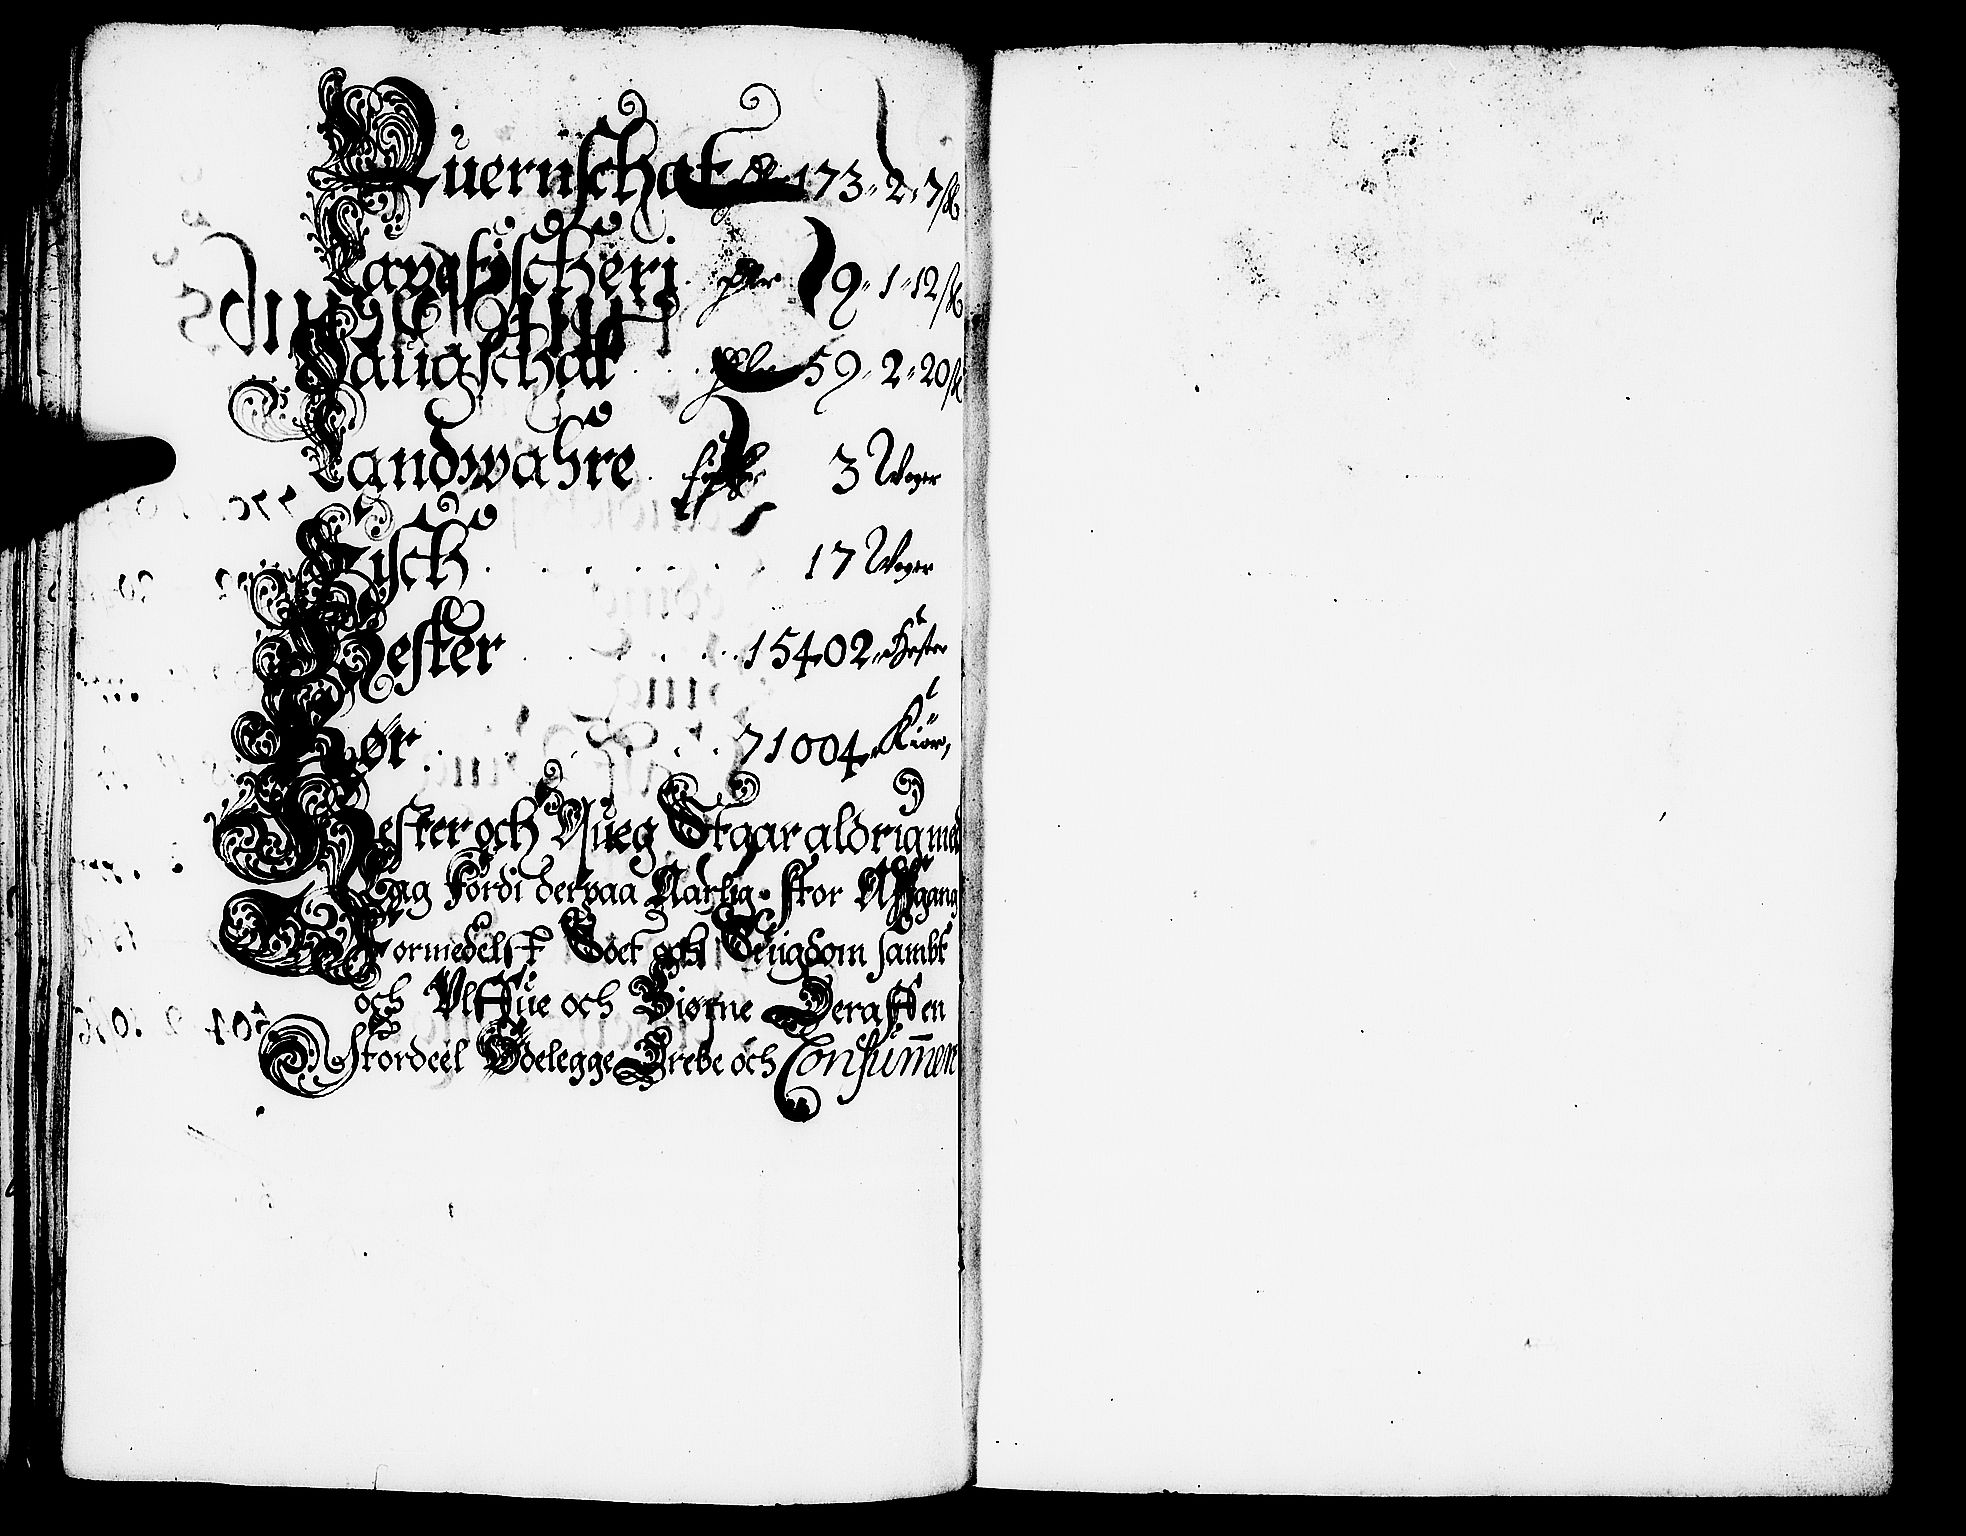 Quernschat 173 - 2 - 7 sk
Laxefischeri 9 - 1 - 12 sk
Saugschat 59 - 2 - 20 sk
Landwahre 3 Woger
Fisch . . . . . . 17 Woger
Hester . . . . . 15402 Hester
Kør . . . . . 71004 Kiør,
Hester och Queg Staar aldrig med
Fordi derpaa Aarlig stor Affgang
Formedelst Soet och Siugdom sambt
och Ulffue och Biørne Deraff en
Stordeel Ødelegge Drebe och Consumere